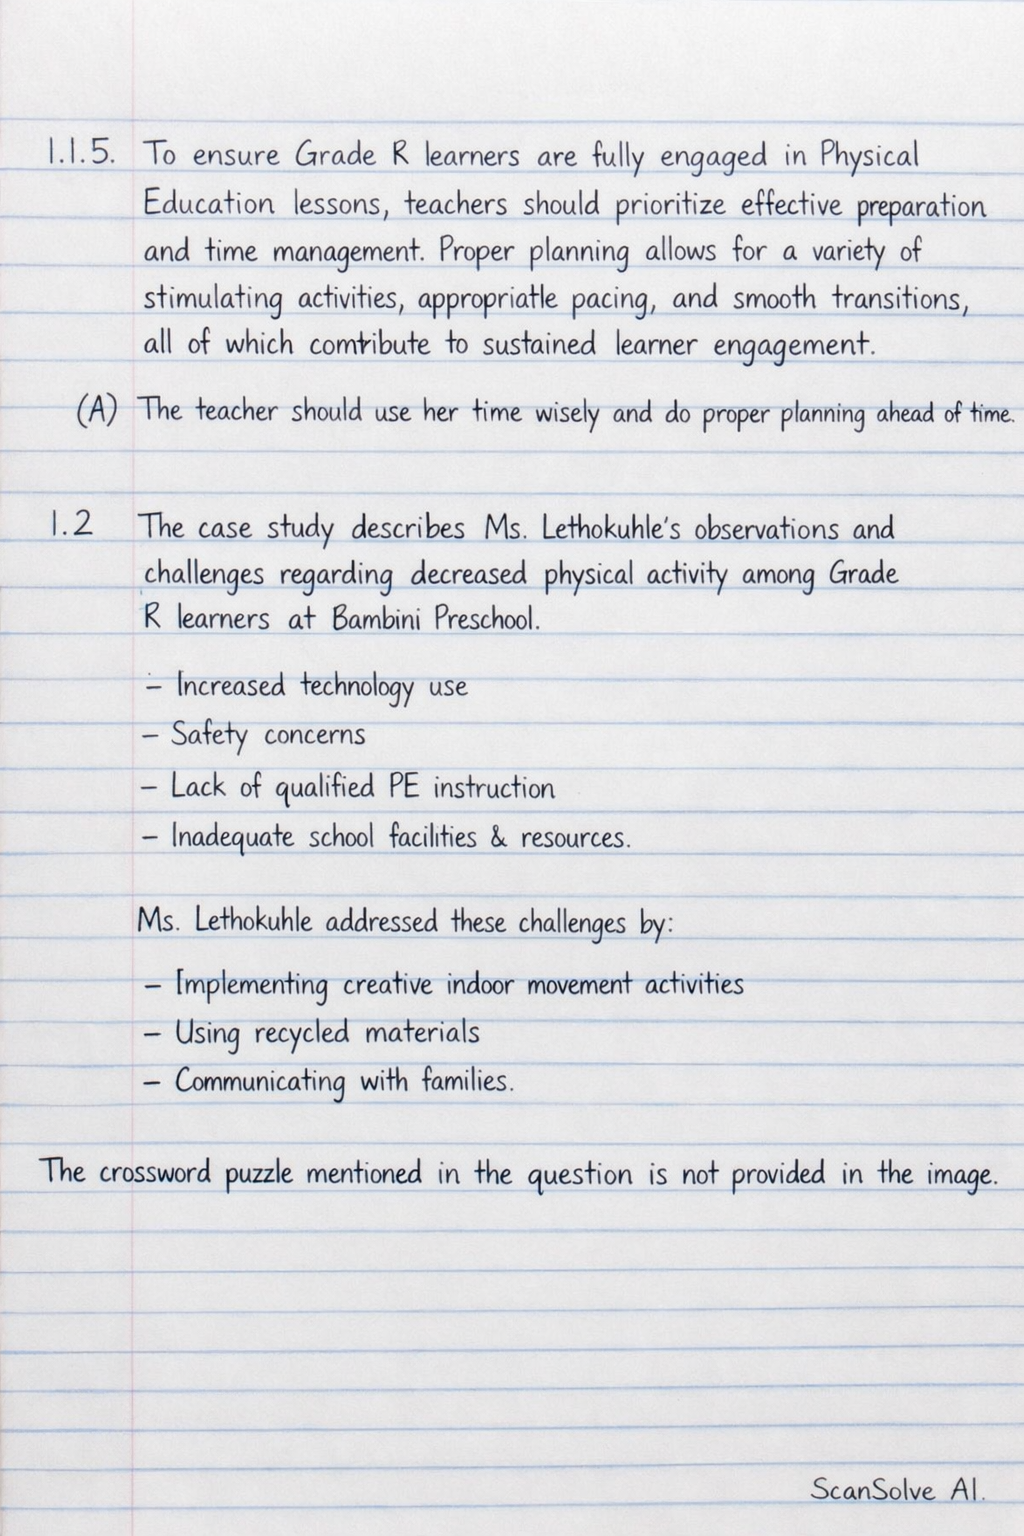 1.1.5. To ensure Grade R learners are fully engaged in Physical
Education lessons, teachers should prioritize effective preparation
and time management. Proper planning allows for a variety of
stimulating activities, appropriatle pacing, and smooth transitions,
all of which comtribute to sustained learner engagement.
(A) The teacher should use her time wisely and do proper planning ahead of time.
1.2 The case study describes Ms. Lethokuhle's observations and
challenges regarding decreased physical activity among Grade
R learners at Bambini Preschool.
– Increased technology use
– Safety concerns
– Lack of qualified PE instruction
– Inadequate school facilities & resources.
Ms. Lethokuhle addressed these challenges by:
– Implementing creative indoor movement activities
– Using recycled materials
– Communicating with families.
The crossword puzzle mentioned in the question is not provided in the image.
ScanSolve AI.